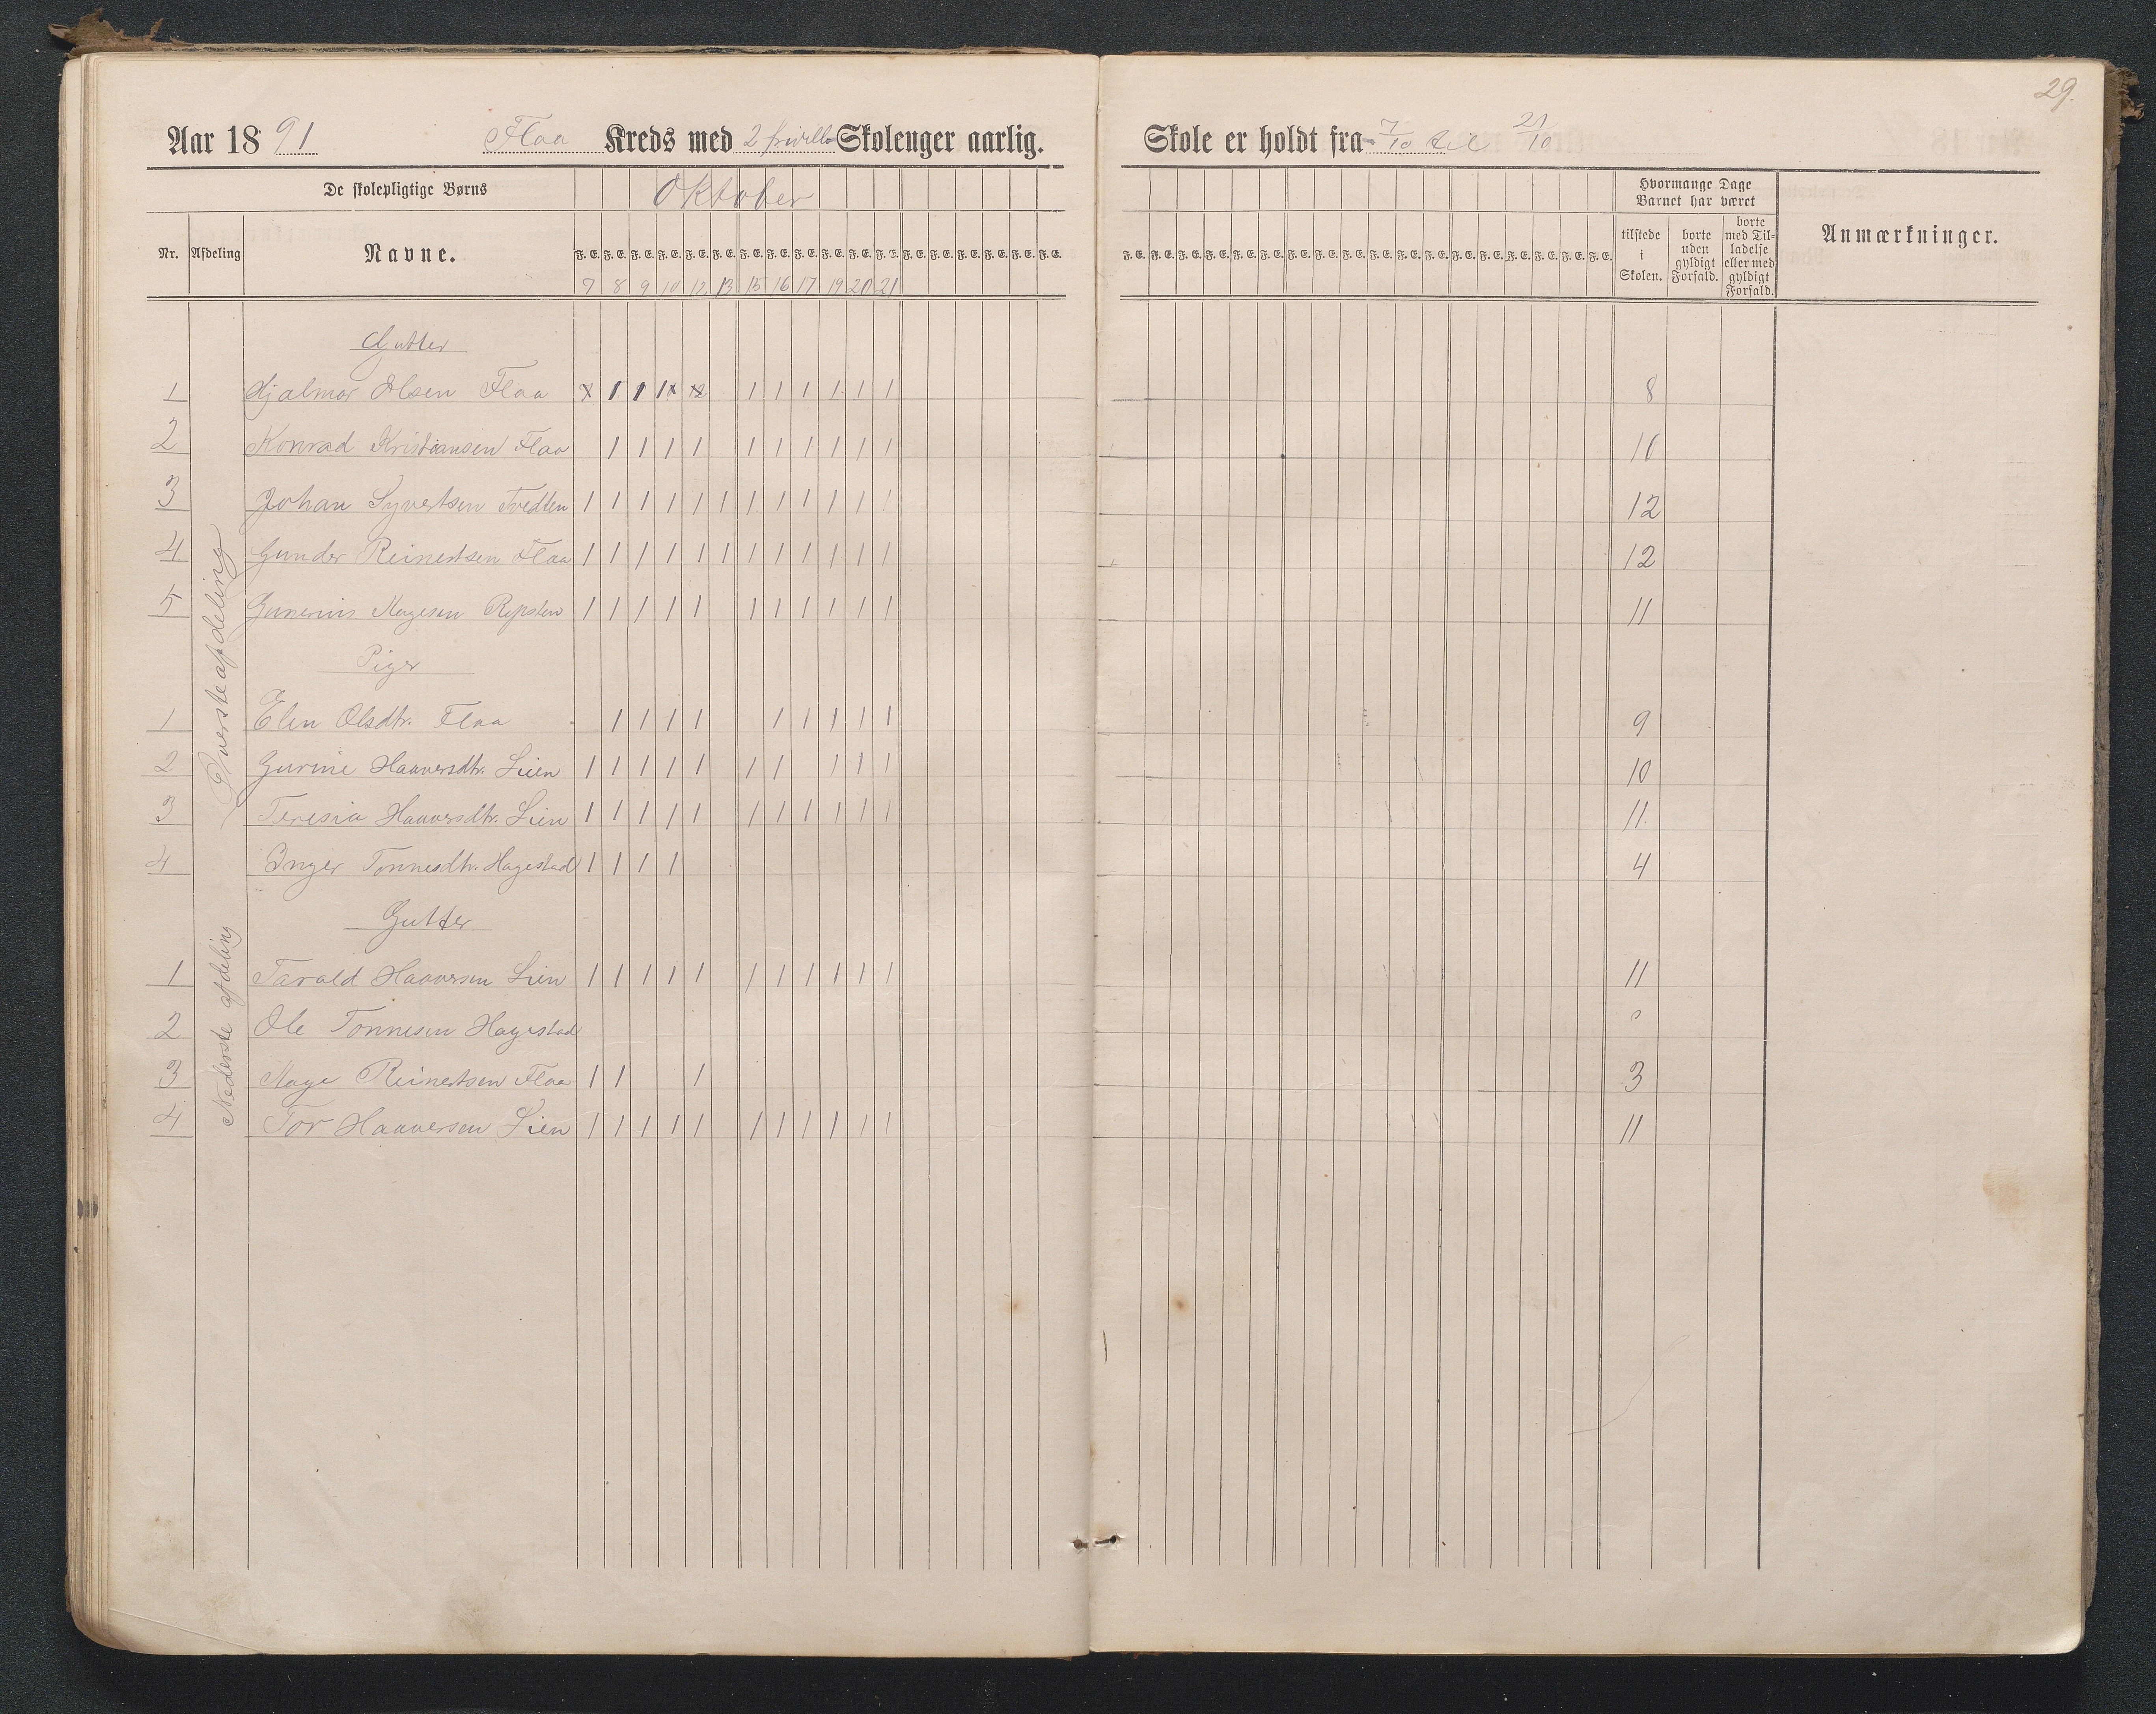 29.
Aar 1891 Flaa Kreds med 2 frivillo Skoleuger aarlig.
Skole er holdt fra 7/10 til 21/10
De skolepligtige Børns
Oktober
Hvormange Dage Barnet har været
Nr. Afdeling Navne.
F. E. F. E. F. E. F. E. F. E. F. E. F. E. F. E. F. E. F. E. F. E. F. E. F. E. F. E. F. E. F. E. F. E. F. E.
7 8 9 10 12 13 15 16 17 19 20 21
F. E. F. E. F. E. F. E. F. E. F. E. F. E. F. E. F. E. F. E. F. E. F. E. F. E. F. E. F. E. F. E. F. E. F. E.
tilstede i Skolen.
borte uden gyldigt Forfald.
borte med Til-ladelse eller med gyldigt Forfald.
Anmærkninger.
Øversteafdeling
Gutter
1 Hjalmar Olsen Flaa x 1 1 1x x 1 1 1 1 1 1 8
2 Konrad Kristiansen Flaa 1 1 1 1 1 1 1 1 1 1 10
3 Johan Syvertsen Tvedten 1 1 1 1 1 1 1 1 1 1 1 1 12
4 Gunder Reinertsen Flaa 1 1 1 1 1 1 1 1 1 1 1 1 12
5 Gunerius Aagesen Repsten 1 1 1 1 1 1 1 1 1 1 1 11
Piger
1 Elen Olsdtr. Flaa 1 1 1 1 1 1 1 1 1 9
2 Gurine Haaversdtr. Lien 1 1 1 1 1 1 1 1 1 1 10
3 Teresia Haaversdtr. Lien 1 1 1 1 1 1 1 1 1 1 1 11
4 Inger Tønnesdtr. Hagestad 1 1 1 1 4
Nederste afdeling
Gutter
1 Tarald Haaversen Lien 1 1 1 1 1 1 1 1 1 1 1 11
2 Ole Tønnesen Hagestad 0
3 Aage Reinertsen Flaa 1 1 1 3
4 Tor Haaversen Lien 1 1 1 1 1 1 1 1 1 1 1 11